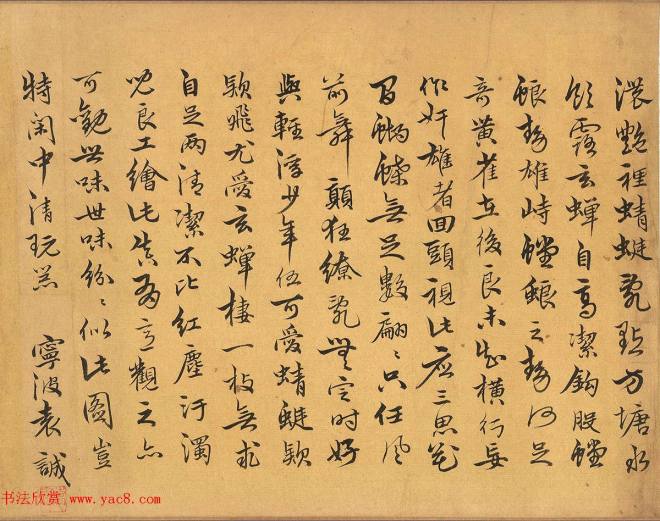 濃艷裡蜻蜓亂點方塘水
飲露玄蟬自高潔鈎股螳
螂勢雄峙螳螂之勢何足
奇黃雀在後良未知橫行妄
作奸雄者回頭視此應三思花
間蝴蝶無足數翩々只任風
前舞顛狂繚亂無定時好
與輕浮少年伍可愛蜻蜓款
款飛尤愛玄蟬棲一枝無求
自足兩清潔不比紅塵汙濁
兒良工繪此真有意觀之亦
可觀世味世味紛々似此圖豈
特閑中清玩 寧波袁誠
书法欣赏 www.yac8.com